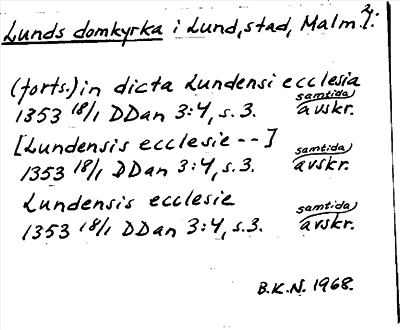 Lunds domkyrka i Lund, stad, Malm. l:
(forts.) in dicta Lundensi ecclesia
1353 18/1 DDan 3:4, s. 3. samtida avskr.
[Lundensis ecclesie --]
1353 18/1 DDan 3:4, s. 3. samtida avskr.
Lundensis ecclesie
1353 18/1 DDan 3:4, s. 3. samtida avskr.
B.K.N. 1968.